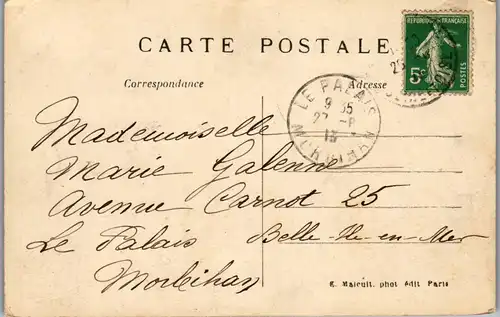 CARTE POSTALE
REPUBLIQUE FRANÇAISE
5c
POSTES
Correspondance
Adresse
LE PALAIS
9 35
27 -8
13
MORBIHAN
Mademoiselle
Marie Galenne
Avenue Carnot 25
Le Palais Belle-Ile-en-Mer
Morbihan
phot édit Paris